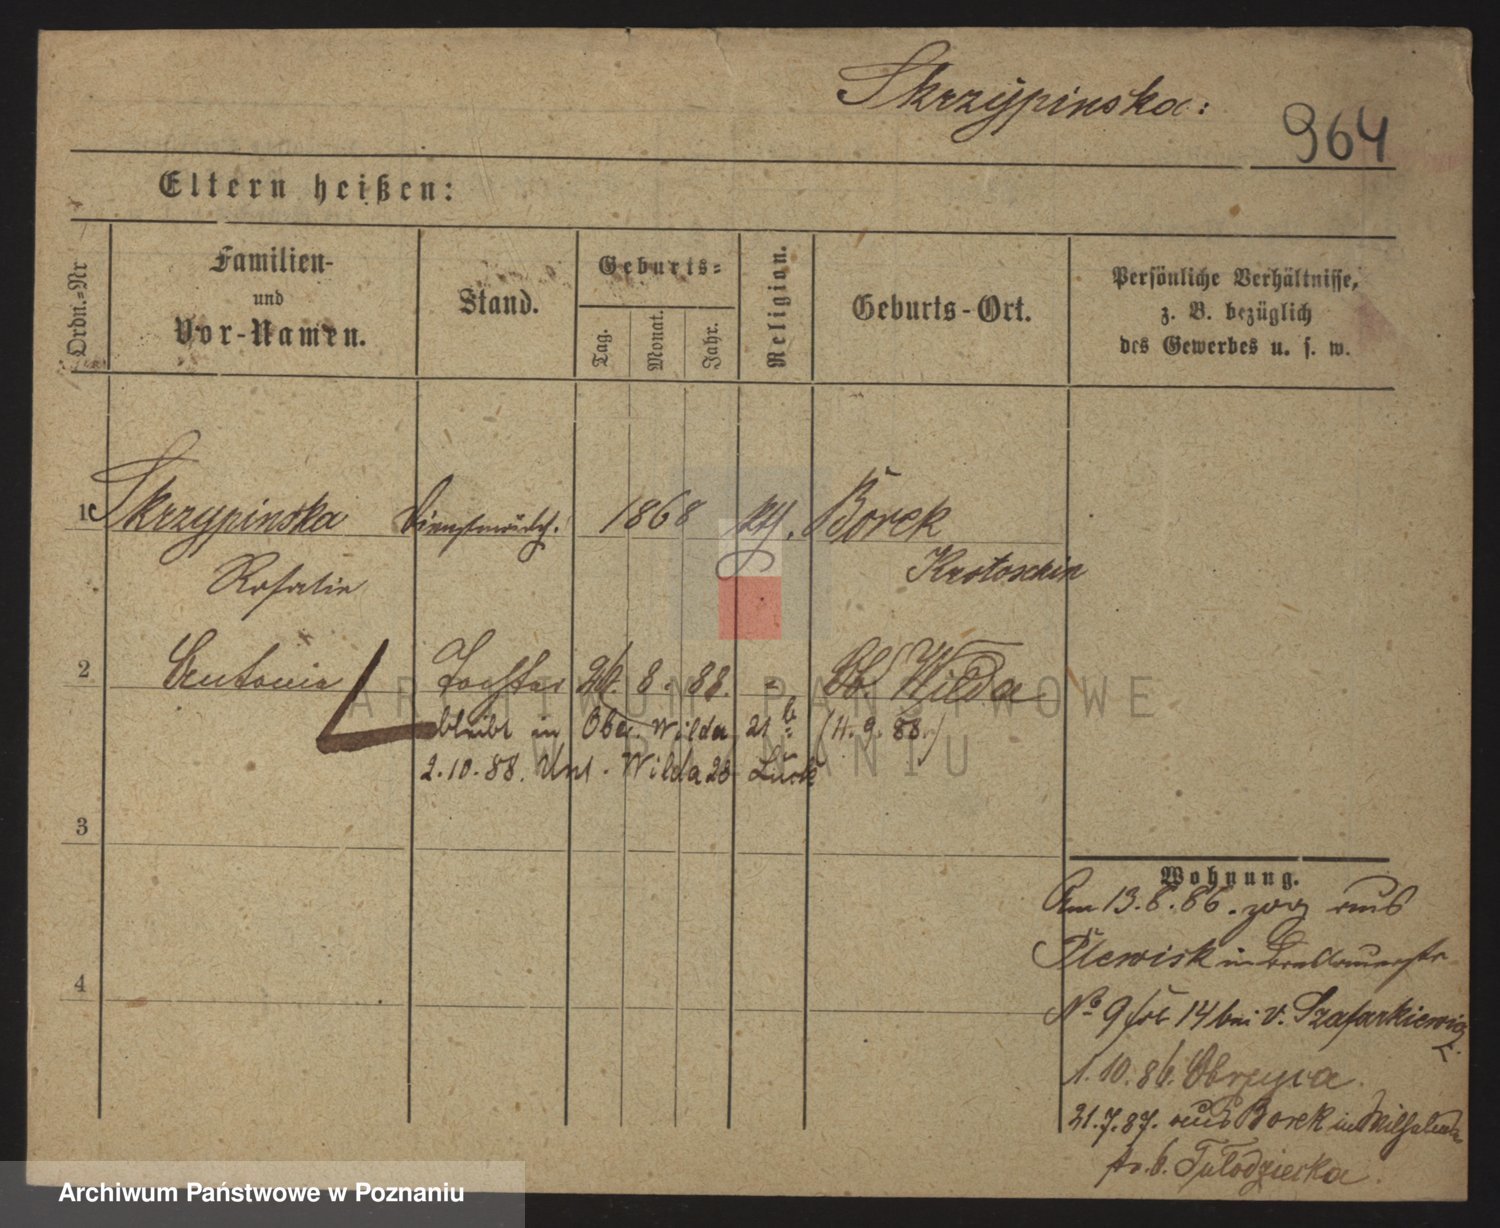 Skrzypinska:
964
Eltern heißen:
Ordn.=Nr
Familien-
und
Vor-Namen.
Stand.
Geburts=
Tag.
Monat.
Jahr.
Religion.
Geburts-Ort.
Persönliche Verhältnisse,
z. B. bezüglich
des Gewerbes u. s. w.
1 Skrzypinska Dienstmädch. 1868 kth. Borek
Rosalie Krotoschin
2 Antonie Tochter 8. 88. - Ob. Wilda
bleibt in Ober Wilda 21 b (4.9.88.)
2.10.88. Unt. Wilda 23
3
4
Wohnung.
Am 13.6.86. zog aus
Plewisk in Breslauerstr
No 9 14 bei v. Szafarkiewicz
1.10.86.
21.7.87. aus Borek in
str. b. Tulodziecka.
ARCHIWUM PAŃSTWOWE
W POZNANIU
Archiwum Państwowe w Poznaniu